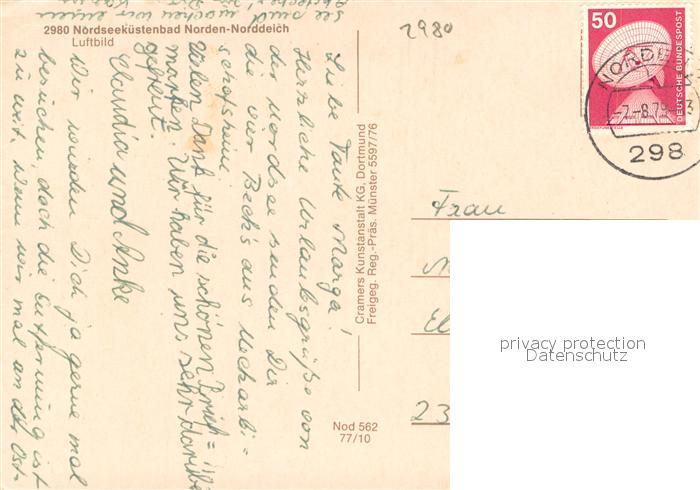 2980 Nordseeküstenbad Norden-Norddeich
Luftbild
2980
50
DEUTSCHE BUNDESPOST
NORDE
-7.-8.79
298
Liebe Tante Marga!
Herzliche Urlaubsgrüße von
der Nordsee senden Dir
die vier Beck's aus Neckarbi=
schofsheim.
Vielen Dank für die schönen Brief=
marken. Wir haben uns sehr darüber
gefreut.
Claudia und Anke
Wir würden Dich ja gerne mal
besuchen, doch die Entfernung ist
zu weit. Wenn wir mal an der Ost-
see sind, machen wir einen
Cramers Kunstanstalt KG, Dortmund
Freigeg. Reg.-Präs. Münster 5597/76
Nod 562
77/10
Frau
23
privacy protection
Datenschutz